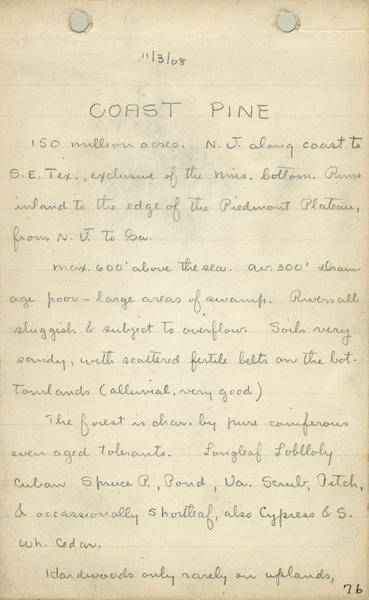 11/3/08
COAST PINE
150 million acres. N.J. along coast to
S.E. Tex., exclusive of the Miss. bottom. Runs
inland to the edge of the Piedmont Plateau,
from N.J. to Ga.
Max. 600' above the sea. av. 300' Drain-
age poor - large areas of swamp. Rivers all
sluggish & subject to overflow. Soils very
sandy, with scattered fertile belts on the bot-
tomlands (alluvial, very good)
The forest is char. by pure coniferous
even aged tolerants. Longleaf Loblloly
Cuban Spruce P., Pond, Va. Scrub, Pitch,
& occassionally Shortleaf, also Cypress & S.
Wh. Cedar.
Hardwoods only rarely on uplands,
76